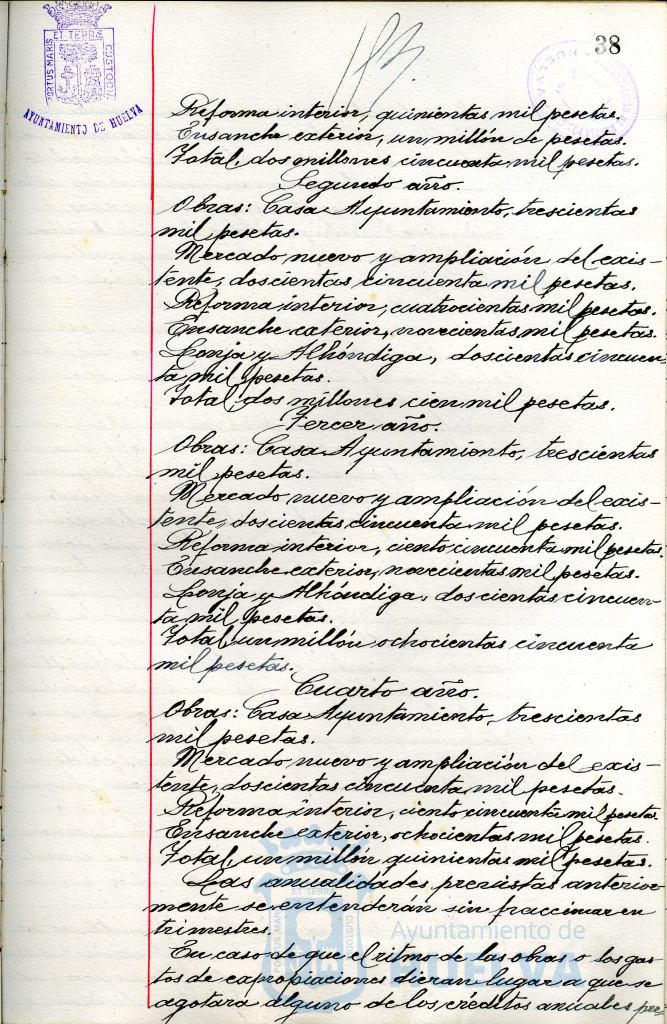 38
PORTUS MARIS ET TERRÆ CUSTODIA
AYUNTAMIENTO DE HUELVA
Reforma interior, quinientas mil pesetas.
Ensanche exterior, un millón de pesetas.
Total, dos millones cincuenta mil pesetas.
Segundo año.
Obras: Casa Ayuntamiento, trescientas
mil pesetas.
Mercado nuevo y ampliación del exis-
tente, doscientas cincuenta mil pesetas.
Reforma interior, cuatrocientas mil pesetas.
Ensanche exterior, novecientas mil pesetas.
Lonja y Alhóndiga, doscientas cincuen-
ta mil pesetas.
Total, dos millones cien mil pesetas.
Tercer año.
Obras: Casa Ayuntamiento, trescientas
mil pesetas.
Mercado nuevo y ampliación del exis-
tente, doscientas cincuenta mil pesetas.
Reforma interior, ciento cincuenta mil pesetas.
Ensanche exterior, novecientas mil pesetas.
Lonja y Alhóndiga, doscientas cincuen-
ta mil pesetas.
Total, un millón ochocientas cincuenta
mil pesetas.
Cuarto año.
Obras: Casa Ayuntamiento, trescientas
mil pesetas.
Mercado nuevo y ampliación del exis-
tente, doscientas cincuenta mil pesetas.
Reforma interior, ciento cincuenta mil pesetas.
Ensanche exterior, ochocientas mil pesetas.
Total, un millón quinientas mil pesetas.
Las anualidades previstas anterior-
mente se entenderán sin fraccionar en
trimestres.
En caso de que el ritmo de las obras o los gas-
tos de expropiaciones dieran lugar a que se
agotara alguno de los créditos anuales pre-
Ayuntamiento de
HUELVA